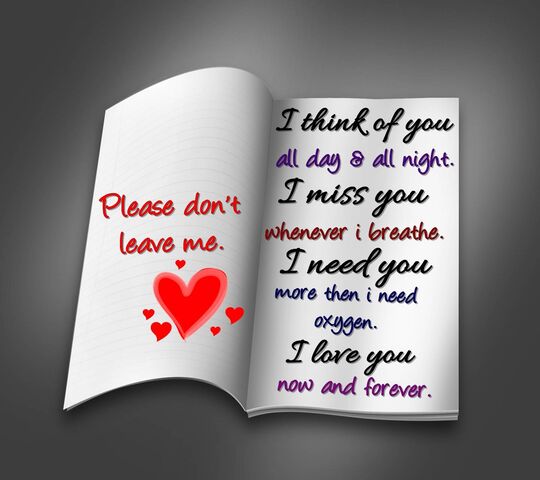 Please don't
leave me.
I think of you
all day & all night.
I miss you
whenever i breathe.
I need you
more then i need
oxygen.
I love you
now and forever.